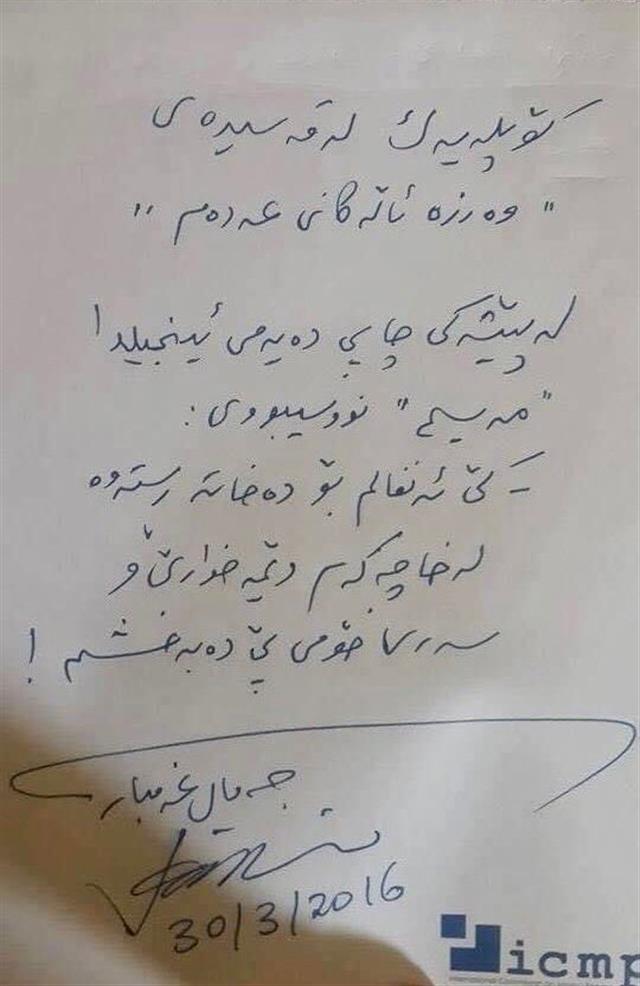 کۆپلەیەک لە قەسیدەی
"وەرزە ئاڵەکانی عەدەم"
لە پێشەکی چاپی دەیەمی ئینجیلدا
"مەسیح" نووسیبووی:
- کێ ئەنفالم بۆ دەخاتە ڕستەوە
لە خاچەکەم دێمە خوارێ و
سەرتاپا خۆمی پێ دەبەخشم!
جەمال غەمبار
30/3/2016
icmp